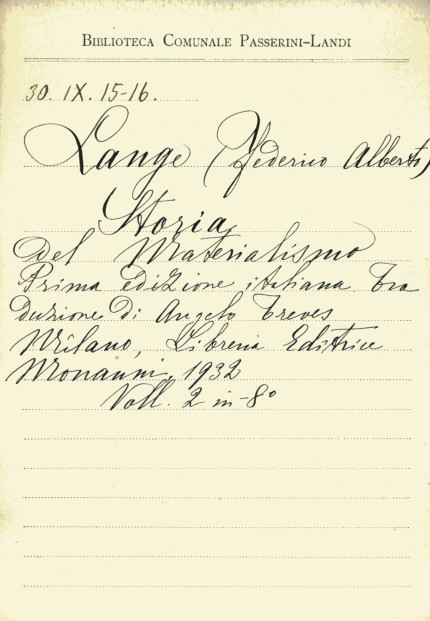 BIBLIOTECA COMUNALE PASSERINI-LANDI
30. IX. 15-16.
Lange (Federico Alberto)
Storia
del Materialismo
Prima edizione italiana Tra
duzione di Angelo Treves
Milano, Libreria Editrice
Monanni, 1932
Voll. 2 in-8°